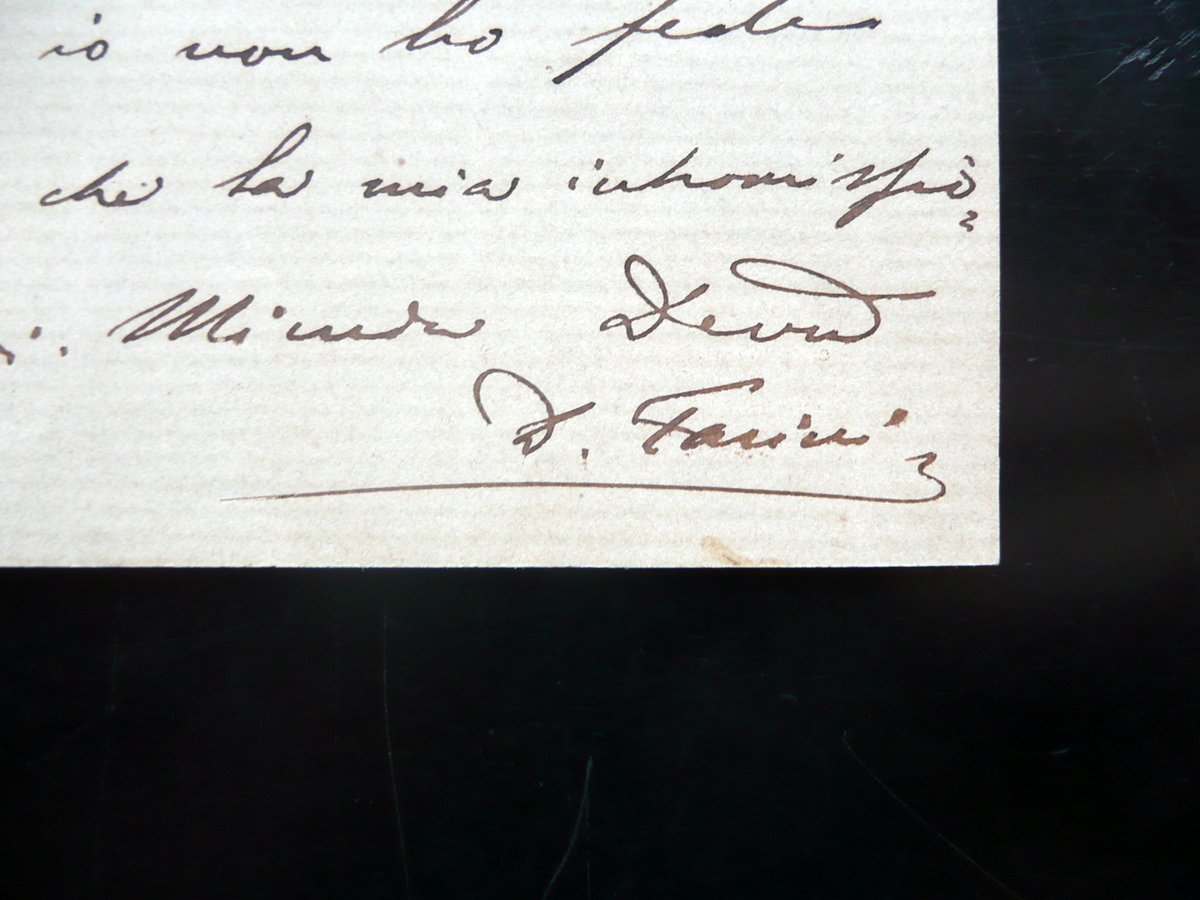 io non ho fede
che la mia intromissio=
Mi creda Devmo
D. Farini